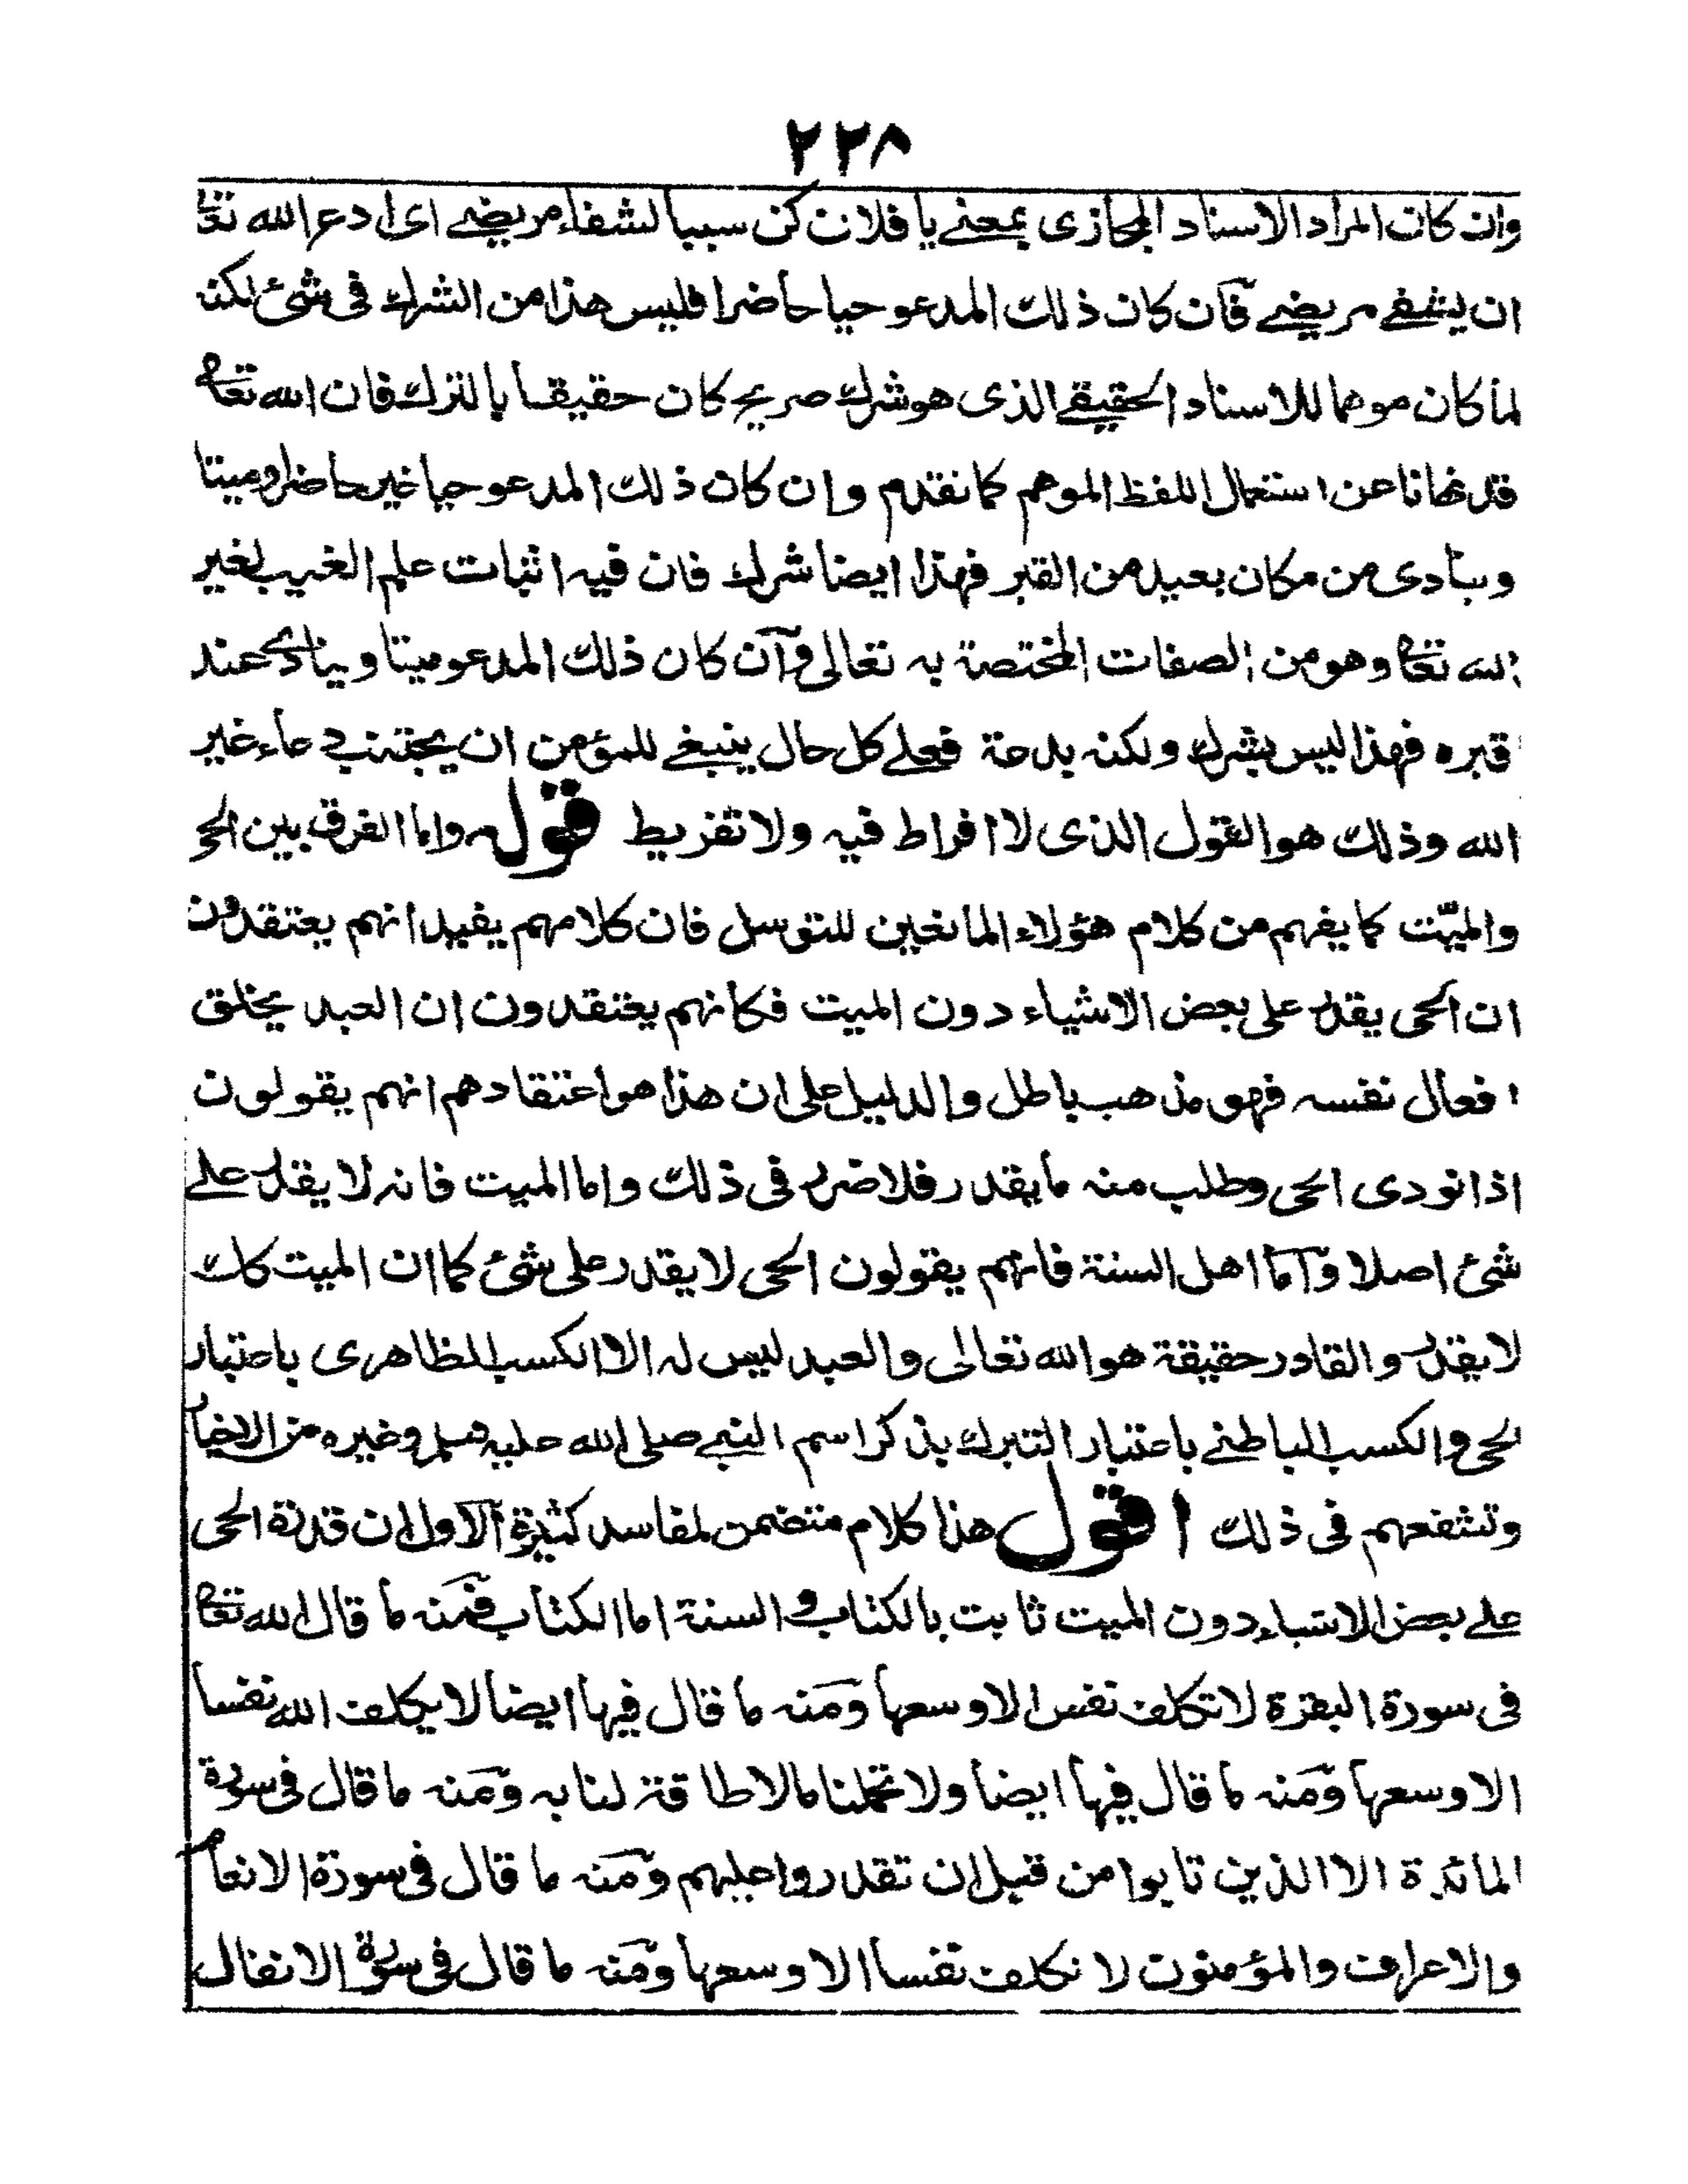 ٢٢٨
وان كان المراد الاسناد المجازى بمعنے يا فلان كن سببا لشفاء مريضے اى ادع الله تعا
ان يشفے مريضے فان كان ذلك المدعو حيا حاضرا فليس هذا من الشرك فى شئ لكنه
لما كان موهما للاسناد الحقيقے الذى هو شرك صريح كان حقيقا بالترك فان الله تعالے
قد نهانا عن استعمال اللفظ الموهم كما تقدم وان كان ذلك المدعو حيا غير حاضر او ميتا
وينادى من مكان بعيد من القبر فهذا ايضا شرك فان فيه اثبات علم الغيب لغير
الله تعالے وهو من الصفات المختصة به تعالى وان كان ذلك المدعو ميتا وينادى عند
قبره فهذا ليس بشرك ولكنه بدعة فعلے كل حال ينبغے للمؤمن ان يجتنب دعاء غير
الله وذلك هو القول الذى لا افراط فيه ولا تفريط قوله واما الفرق بين الحى
والميّت كما يفهم من كلام هؤلاء المانعين للتوسل فان كلامهم يفيد انهم يعتقدون
ان الحى يقدر على بعض الاشياء دون الميت فكانهم يعتقدون ان العبد يخلق
افعال نفسه فهو مذهب باطل والدليل على ان هذا هو اعتقادهم انهم يقولون
اذا نودى الحى وطلب منه ما يقدر فلا ضرر فى ذلك واما الميت فانه لا يقدر علے
شئ اصلا واما اهل السنة فانهم يقولون الحى لا يقدر على شئ كما ان الميت كذلك
لا يقدر والقادر حقيقة هو الله تعالى والعبد ليس له الا الكسب الظاهرى باعتبار
الحى والكسب الباطنے باعتبار التبرك بذكر اسم النبے صلى الله عليه وسلم وغيره من الاخيار
وتشفعهم فى ذلك اقول هذا كلام متضمن لمفاسد كثيرة الاول ان قدرة الحى
علے بعض الاشياء دون الميت ثابت بالكتاب والسنة اما الكتاب فمنه ما قال الله تعالے
فى سورة البقرة لا تكلف نفس الا وسعها ومنه ما قال فيها ايضا لا يكلف الله نفسا
الا وسعها ومنه ما قال فيها ايضا ولا تحملنا مالا طاقة لنا به ومنه ما قال فى سورة
المائدة الا الذين تابوا من قبل ان تقدروا عليهم ومنه ما قال فى سورة الانعام
والاعراف والمؤمنون لا نكلف نفسا الا وسعها ومنه ما قال فى سورة الانفال